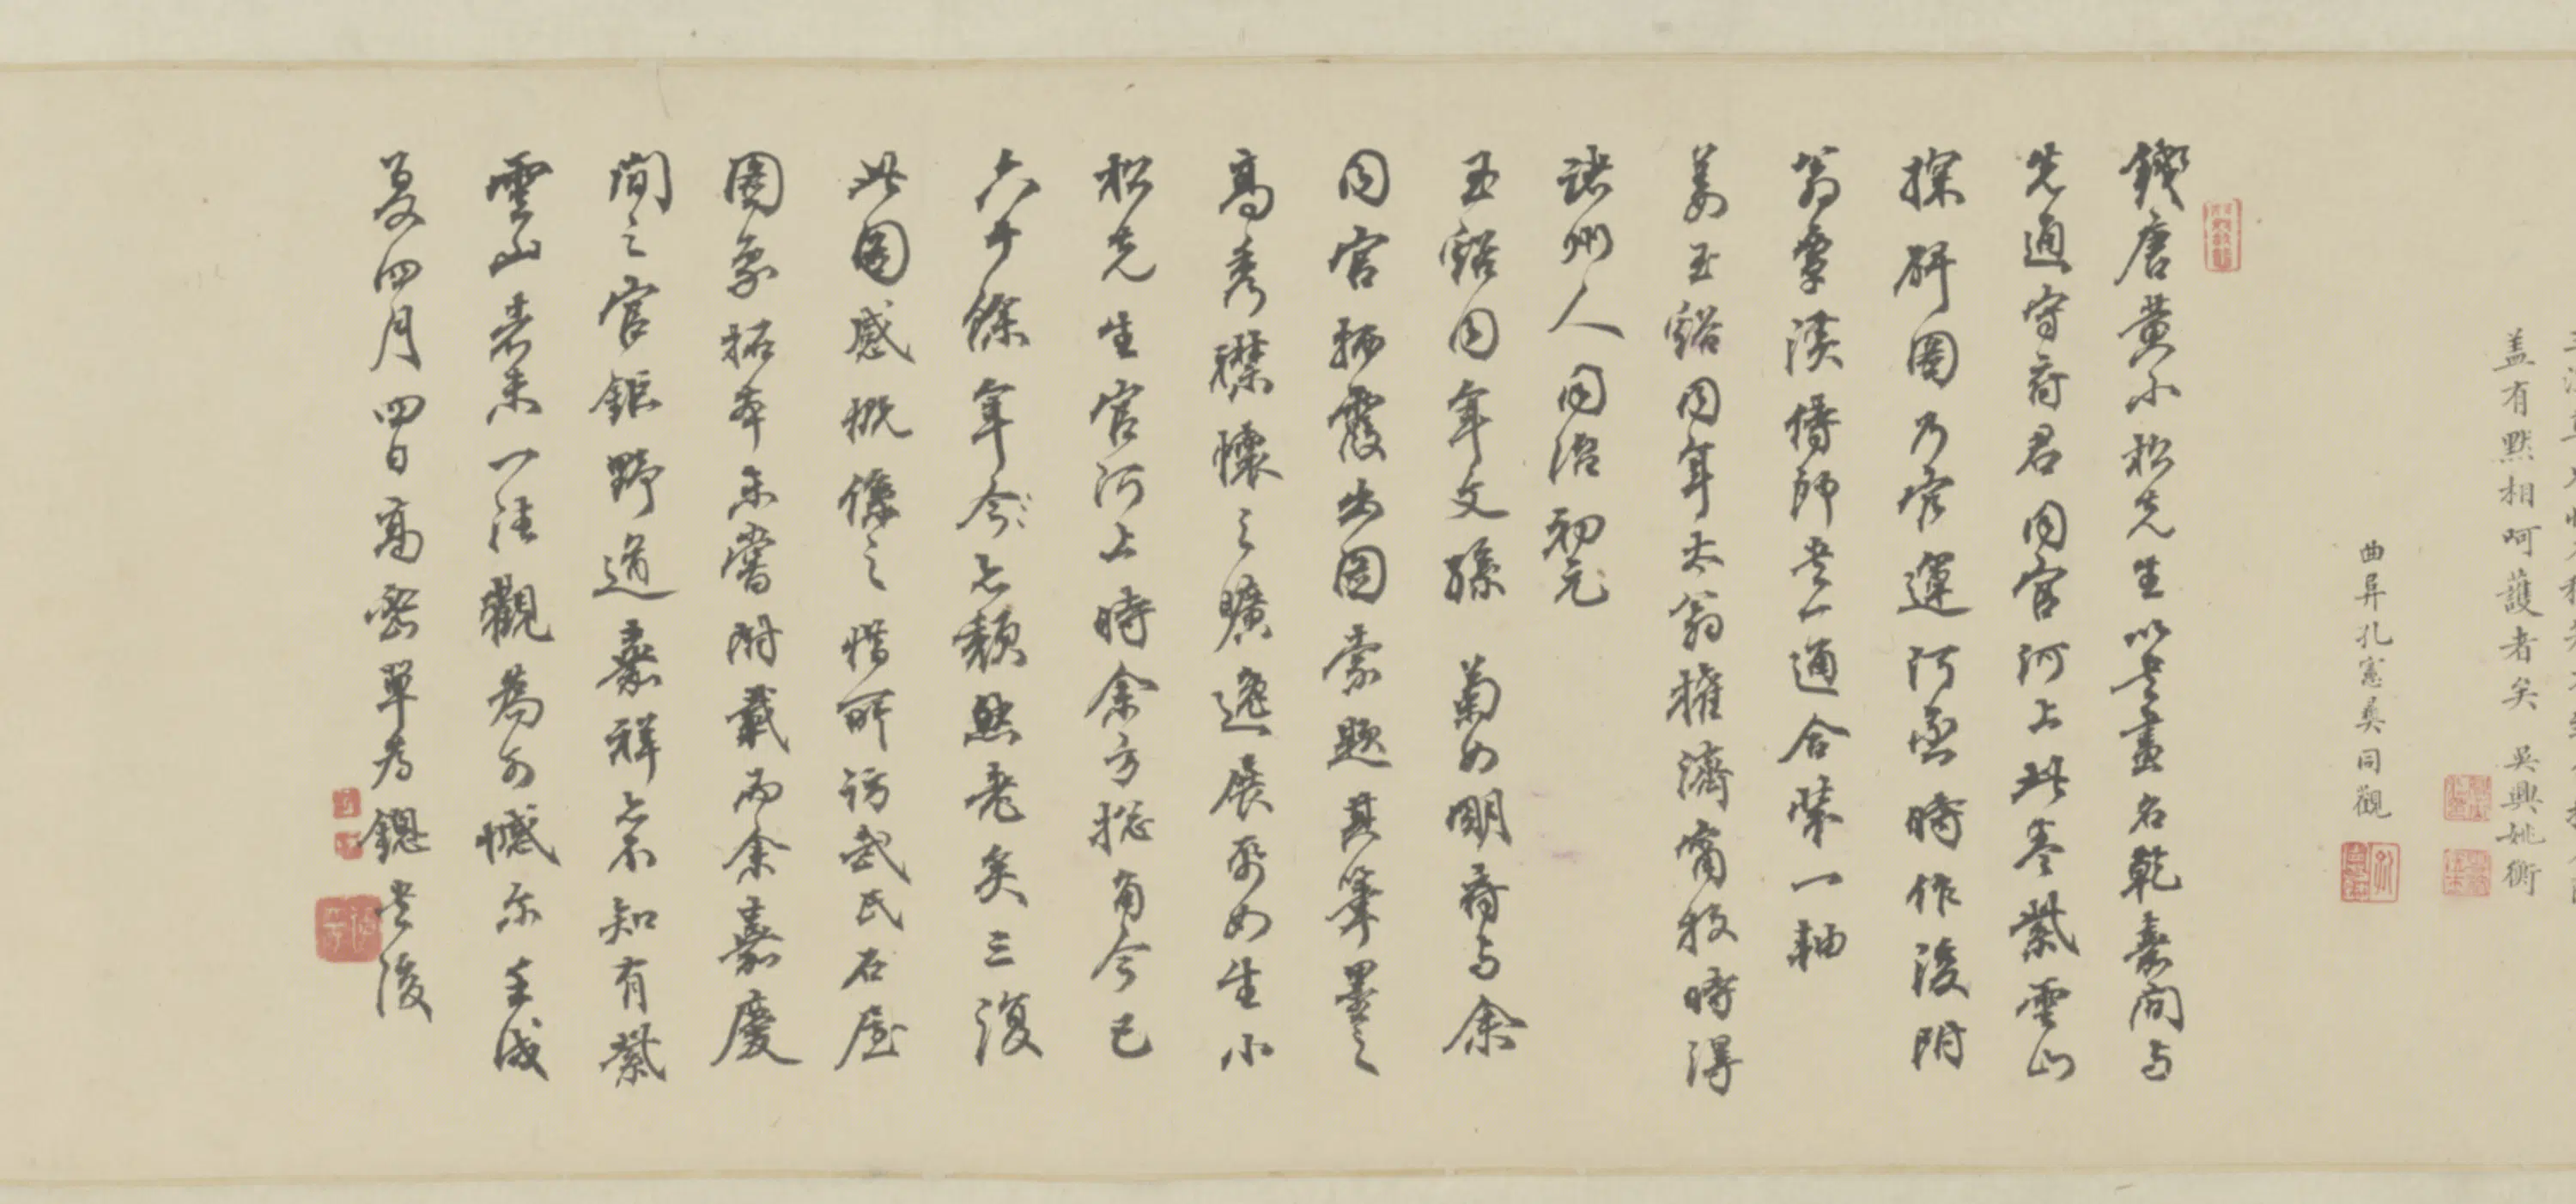 蓋有默相呵護者矣 吳興姚衡
曲阜孔憲彝同觀
錢唐黃小松先生以書畫名乾嘉間与
先通守府君同官河上此卷紫雲山
探碑圖乃官運河丞時作後附
翁覃溪僃師書一通合裝一軸
姜玉谿同年太翁權濟甯牧時得
諸州人同治初元
玉谿同年文孫 菊如明府与余
同官栖霞出圖索題其筆墨之
高秀襟懷之曠逸展卷如生小
松先生官河上時余方總角今已
六十餘年今老頹然老矣三復
此圖感概係之惜所訪武氏石屋
圖象拓本未嘗附載而余嘉慶
間之官鉅野道嘉祥亦不知有紫
雲山者未一往觀為可憾尔壬戌
夏四月四日高密單為鏓書後